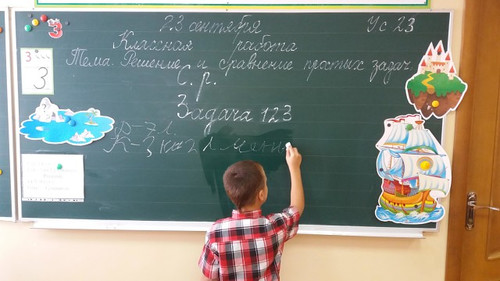 3
23 сентября Ус 23
Классная работа
3
3
Тема. Решение и сравнение простых задач.
С. р.
Задача 123
В – 7 л.
К – ?, на 2 л. меньш